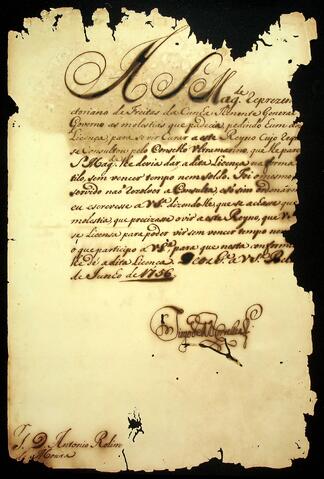 A S. Mag.de Reprezen
toriano de Freitas da Cunha Tenente General
Governo as molestias que padecia, pedindo
Licença, para se vir Curar a este Reyno Cujo
se Consultou pelo Conselho Ultramarino, que lhe
S. Mag.e lhe devia dar a dita Licença na forma
tilo, sem vencer tempo nem soldo. Foi o mesmo
servido não rezolver a Consulta, e si sim
eu escrevese a V.S.a dizendo lhe, que se achase
molestia, que precizase o vir a este Reyno, que
se Licensa para poder vir sem vencer tempo
o que participo a V.S.a para que nesta conform
lhe dê a dita Licença. D.s g.e a V.S.a
de Junho de 1756
S. D. Antonio Rolim
de Moura